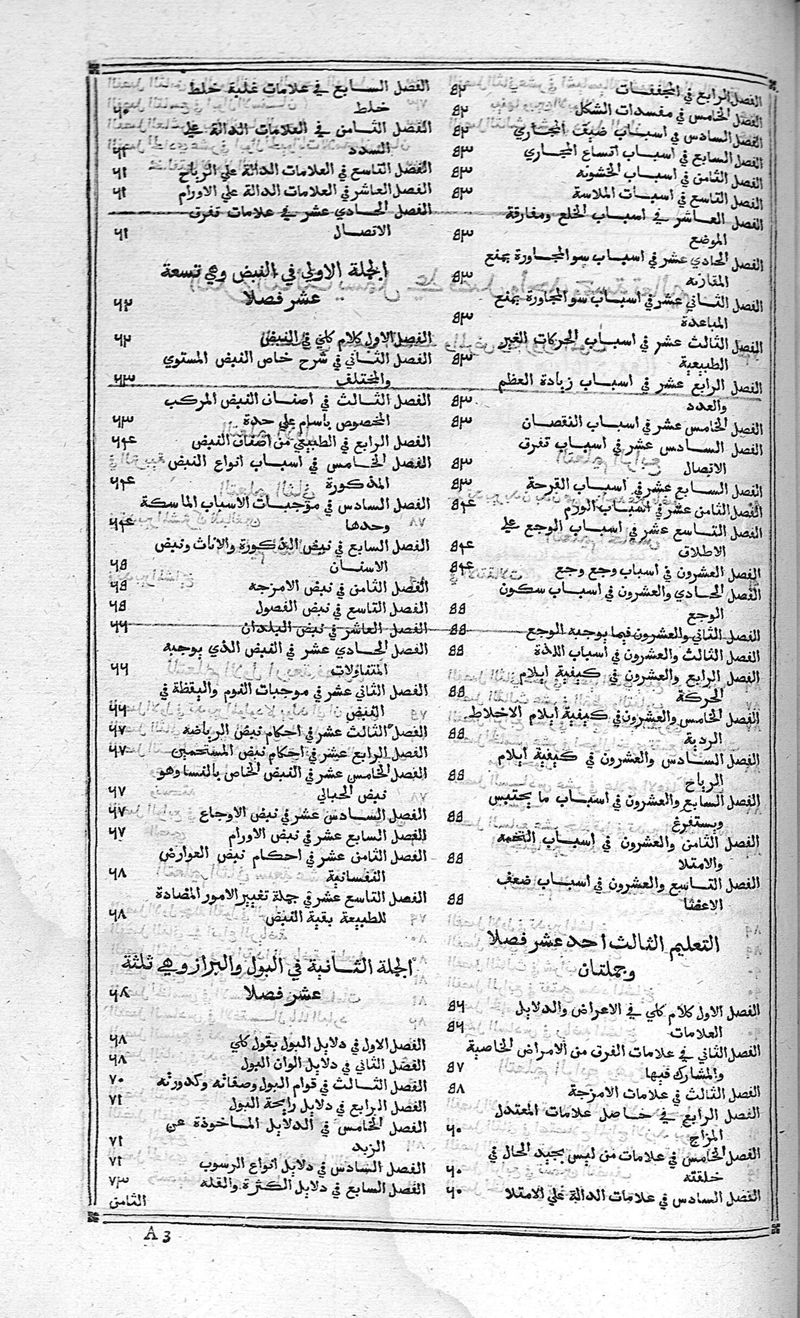 الفصل الرابع في المجففات ٥٢
الفصل الخامس في مفسدات الشكل ٥٢
الفصل السادس في اسباب ضيق المجاري ٥٣
الفصل السابع في اسباب اتساع المجاري ٥٣
الفصل الثامن في اسباب الخشونه ٥٣
الفصل التاسع في اسباب الملاسة ٥٣
الفصل العاشر في اسباب الخلع ومفارقة
الموضع ٥٣
الفصل الحادي عشر في اسباب سو المجاورة بمنع
المقاربه ٥٣
الفصل الثاني عشر في اسباب سو المجاورة بمنع
المباعدة ٥٣
الفصل الثالث عشر في اسباب الحركات الغير
الطبيعية ٥٣
الفصل الرابع عشر في اسباب زيادة العظم
والعدد ٥٣
الفصل الخامس عشر في اسباب النقصان ٥٣
الفصل السادس عشر في اسباب تفرق
الاتصال ٥٣
الفصل السابع عشر في اسباب القرحة ٥٣
الفصل الثامن عشر في اسباب الورم ٥٤
الفصل التاسع عشر في اسباب الوجع علي
الاطلاق ٥٤
الفصل العشرون في اسباب وجع وجع ٥٤
الفصل الحادي والعشرون في اسباب سكون
الوجع ٥٥
الفصل الثاني والعشرون فيما يوجبه الوجع ٥٥
الفصل الثالث والعشرون في اسباب اللذة ٥٥
الفصل الرابع والعشرون في كيفية ايلام
الحركة ٥٥
الفصل الخامس والعشرون في كيفية ايلام الاخلاط
الردية ٥٥
الفصل السادس والعشرون في كيفية ايلام
الرياح ٥٥
الفصل السابع والعشرون في اسباب ما يحتبس
ويستفرغ ٥٥
الفصل الثامن والعشرون في اسباب التخمه
والامتلا ٥٥
الفصل التاسع والعشرون في اسباب ضعف
الاعضا ٥٥
التعليم الثالث احد عشر فصلا
وجملتان
الفصل الاول كلام كلي في الاعراض والدلايل
العلامات ٥٦
الفصل الثاني في علامات الفرق من الامراض الخاصية
والمشارك فيها ٥٧
الفصل الثالث في علامات الامزجة ٥٨
الفصل الرابع في حاصل علامات المعتدل
المزاج ٦٠
الفصل الخامس في علامات من ليس بجيد الحال في
خلقته ٦٠
الفصل السادس في علامات الدالة علي الامتلا ٦٠
الفصل السابع في علامات غلبة خلط
خلط ٦٠
الفصل الثامن في العلامات الدالة علي
السدد ٦١
الفصل التاسع في العلامات الدالة علي الرياح ٦١
الفصل العاشر في العلامات الدالة علي الاورام ٦١
الفصل الحادي عشر في علامات تفرق
الاتصال ٦١
الجملة الاولي في النبض وهي تسعة
عشر فصلا
الفصل الاول كلام كلي في النبض ٦٢
الفصل الثاني في شرح خاص النبض المستوي
والمختلف ٦٣
الفصل الثالث في اصناف النبض المركب
المخصوص باسام علي حدة ٦٣
الفصل الرابع في الطبيعي من اصناف النبض ٦٤
الفصل الخامس في اسباب انواع النبض
المذكورة ٦٤
الفصل السادس في موجبات الاسباب الماسكة
وحدها ٦٤
الفصل السابع في نبض الذكورة والاناث ونبض
الاسنان ٦٥
الفصل الثامن في نبض الامزجه ٦٥
الفصل التاسع في نبض الفصول ٦٥
الفصل العاشر في نبض البلدان ٦٦
الفصل الحادي عشر في النبض الذي يوجبه
المتناولات ٦٦
الفصل الثاني عشر في موجبات النوم واليقظة في
النبض ٦٦
الفصل الثالث عشر في احكام نبض الرياضه ٦٧
الفصل الرابع عشر في احكام نبض المستحمين ٦٧
الفصل الخامس عشر في النبض الخاص بالنسا وهو
نبض الحبالي ٦٧
الفصل السادس عشر في نبض الاوجاع ٦٧
الفصل السابع عشر في نبض الاورام ٦٧
الفصل الثامن عشر في احكام نبض العوارض
النفسانية ٦٨
الفصل التاسع عشر في جملة تغيير الامور المضادة
للطبيعة بقية النبض ٦٨
الجملة الثانية في البول والبراز وهي ثلثة
عشر فصلا ٦٨
الفصل الاول في دلايل البول بقول كلي ٦٨
الفصل الثاني في دلايل الوان البول ٦٨
الفصل الثالث في قوام البول وصفائه وكدورته ٧٠
الفصل الرابع في دلايل رايحة البول ٧١
الفصل الخامس في الدلايل الماخوذة عن
الزبد ٧١
الفصل السادس في دلايل انواع الرسوب ٧١
الفصل السابع في دلايل الكثرة والقله ٧٣
الثامن
A 3